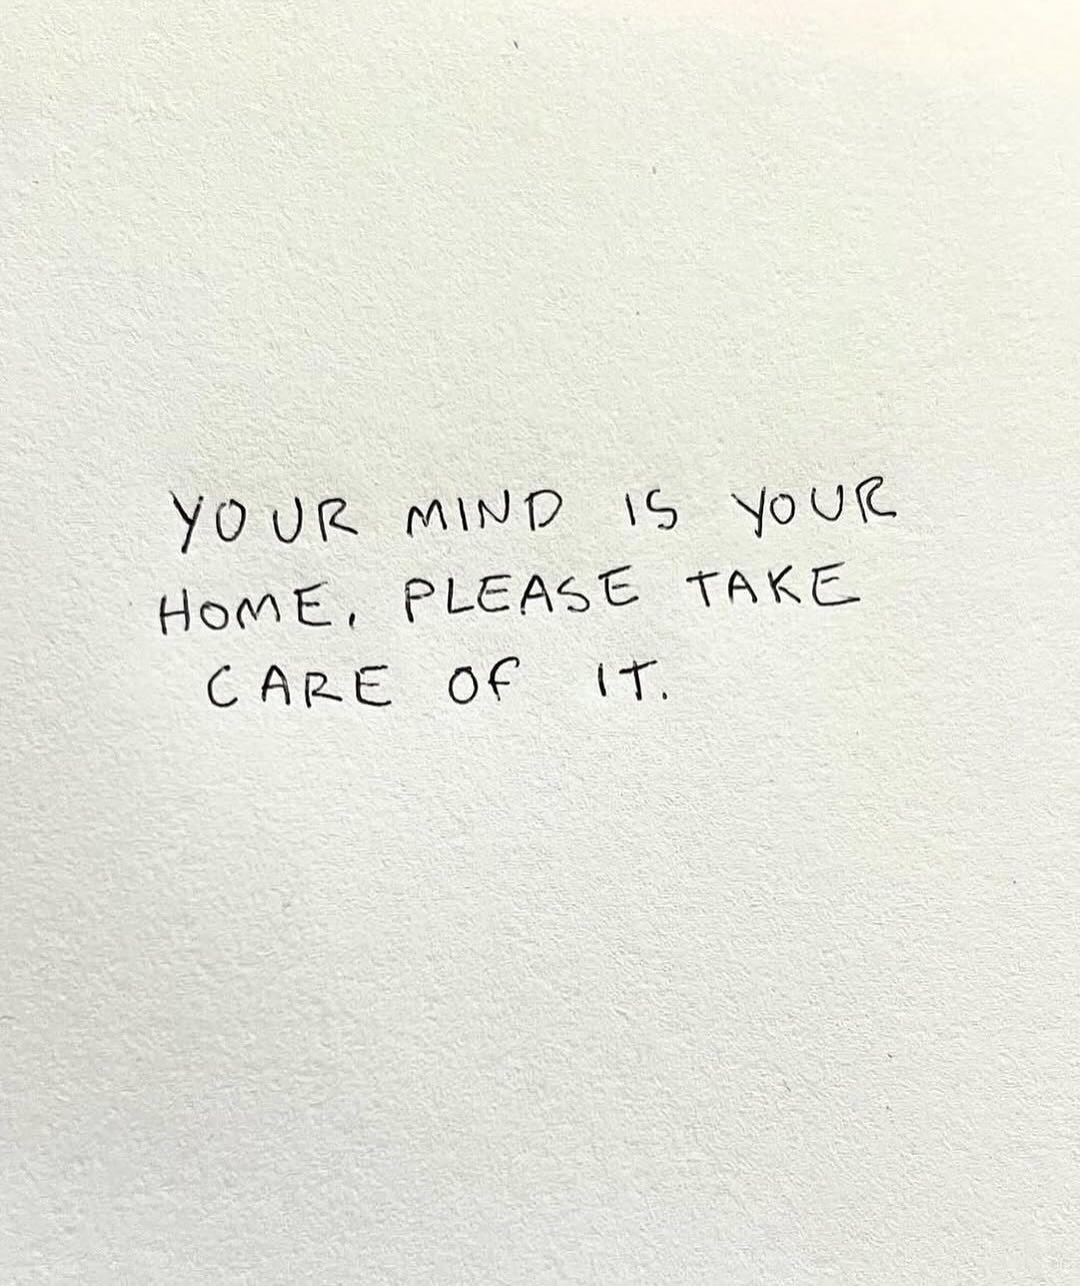 YOUR MIND IS YOUR
HOME. PLEASE TAKE
CARE OF IT.